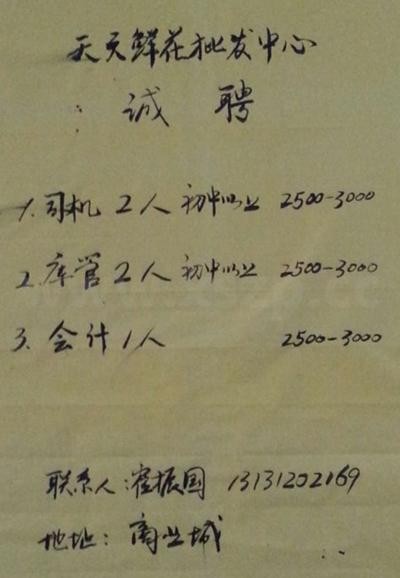 天天鲜花批发中心
诚 聘
1. 司机 2人 初中以上 2500-3000
2. 库管 2人 初中以上 2500-3000
3. 会计 1人 2500-3000
联系人:崔振国 13131202169
地址: 商业城